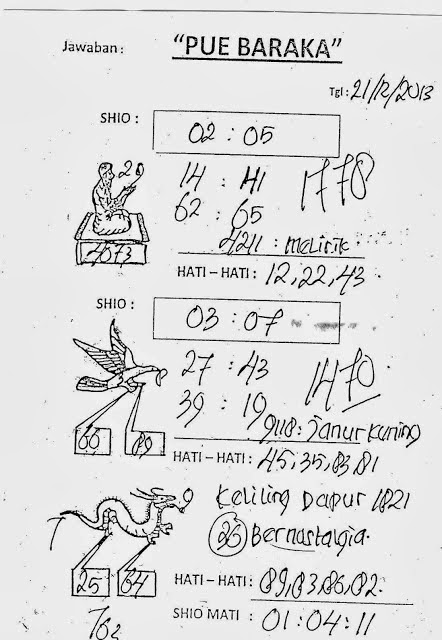 Jawaban : "PUE BARAKA"
Tgl : 21/12/2013
SHIO :
02 : 05
20
14 : 41
1778
62 : 65
4573
4211 : melirik
HATI – HATI : 12, 22, 43
SHIO :
03 : 07
27 : 43
1470
39 : 19
9118 : Janur Kuning
60 89
HATI – HATI : 45, 35, 83, 81
Keliling Dapur 1821
Bernostalgia.
25 64
HATI – HATI : 89, 83, 86, 82.
762
SHIO MATI : 01 : 04 : 11